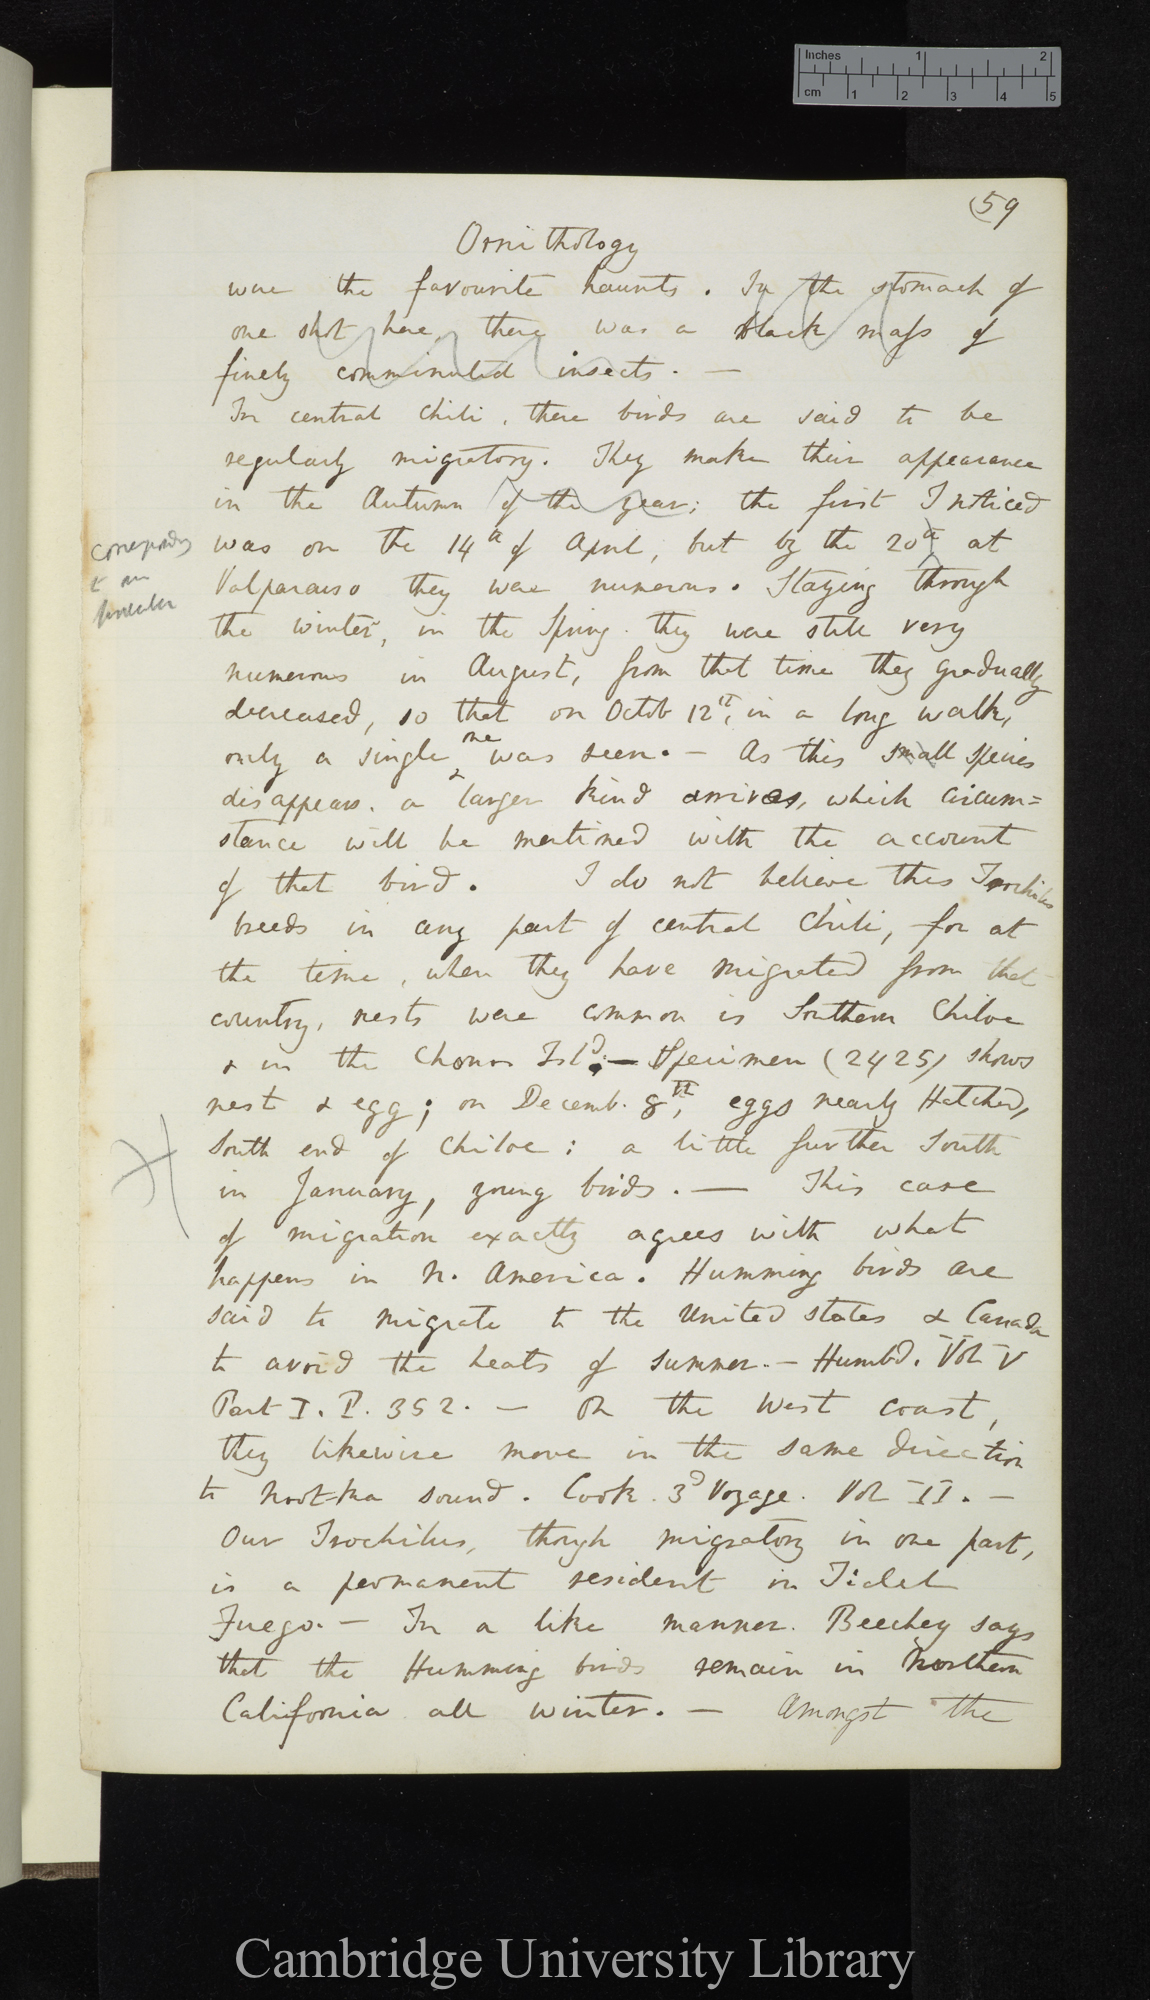 Inches 1 2
cm 1 2 3 4 5
(59
Ornithology
were the favourite haunts. In the stomach of
one shot here, there was a black mass of
finely comminuted insects. —
In central Chili, these birds are said to be
regularly migratory. They make their appearance
in the Autumn of the year; the first I noticed
was on the 14th of April, but by the 20th at
corresponding
to our
Valparaiso they were numerous. Staying through
the winter, in the Spring they were still very
numerous in August, from that time they gradually
decreased, so that on Octob 12th, in a long walk,
only a single one was seen. — As this small species
disappears, a larger kind arrives, which circum=
stance will be mentioned with the account
of that bird. I do not believe this Trochilus
breeds in any part of central Chili, for at
the time, when they have migrated from that
country, nests were common is Southern Chiloe
& in the Chonos Isld. — Specimen (2425) shows
nest & egg; on Decemb. 8th, eggs nearly Hatched,
South end of Chiloe: a little further South
in January, young birds. — This case
of migration exactly agrees with what
happens in N. America. Humming birds are
said to migrate to the United states & Canada
to avoid the heats of summer. — Humbd. Vol V
Part I. P. 352. — On the West coast,
they likewise move in the same direction
to Nootka sound. Cook. 3d Voyage. Vol II. —
Our Trochilus, though migratory in one part,
is a permanent resident in Tidel
Fuego. — In a like manner. Beechey says
that the Humming birds remain in Northern
California all winter. — Amongst the
Cambridge University Library